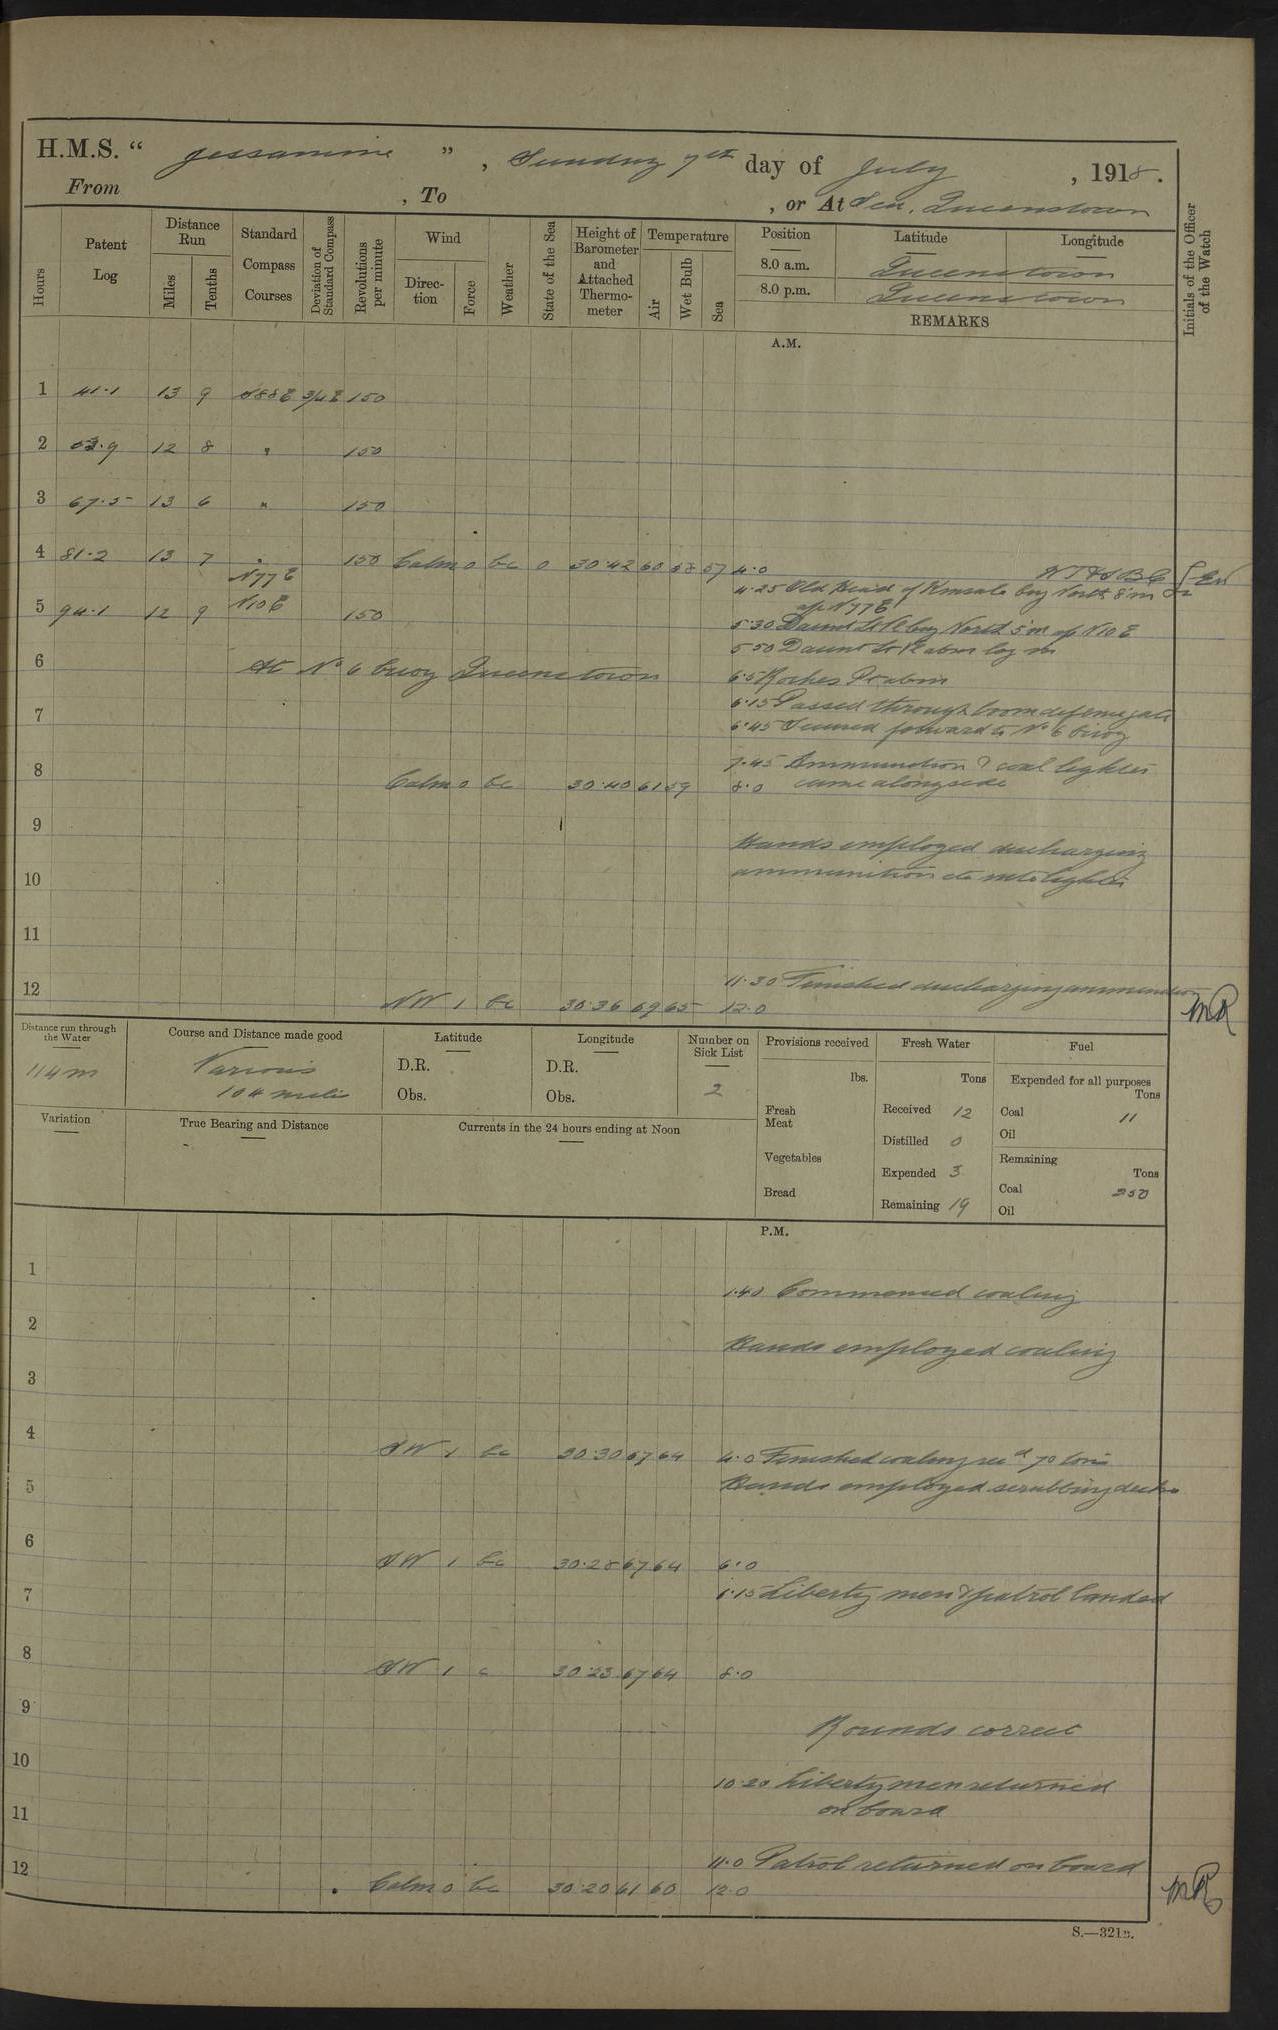 H.M.S. “ Jessamine ” , Sunday 7th day of July , 1918.
From , To , or At Sea, Queenstown
Hours
Patent Log
Distance Run
Miles
Tenths
Standard Compass Courses
Deviation of Standard Compass
Revolutions per minute
Wind
Direction
Force
Weather
State of the Sea
Height of Barometer and Attached Thermometer
Temperature
Air
Wet Bulb
Sea
Position Latitude Longitude
8.0 a.m. Queenstown
8.0 p.m. Queenstown
REMARKS
Initials of the Officer of the Watch
A.M.
1 41.1 13 9 S88E 3/4E 150
2 53.9 12 8 " 150
3 67.5 13 6 " 150
4 81.2 13 7 " 150 Calm 0 bc 0 30.42 60 58 57 4.0
N77E
4.25 Old Head of Kinsale brg North 8'm
a/c N77E
5 94.1 12 9 N10E 150
5.30 Daunt Lt Vl brg North 5'm a/c N10E
5.50 Daunt Lt Vl abm log in
6 At No 6 buoy Queenstown
6.5 Roches Pt abm
6.15 Passed through boom defence gate
7
6.45 Secured forward to No 6 buoy
7.45 Ammunition & coal lighter
came alongside
8 Calm 0 bc 30.40 61 59 8.0
9
Hands employed discharging
ammunition etc into lighter
10
11
11.30 Finished discharging ammunition
12 NW 1 bc 30.36 69 65 12.0 MR
Distance run through the Water
114 m
Course and Distance made good
Various
104 miles
Latitude
D.R.
Obs.
Longitude
D.R.
Obs.
Number on Sick List
2
Variation
True Bearing and Distance
Currents in the 24 hours ending at Noon
Provisions received
lbs.
Fresh Meat
Vegetables
Bread
Fresh Water
Tons
Received 12
Distilled 0
Expended 3
Remaining 19
Fuel
Expended for all purposes
Tons
Coal 11
Oil
Remaining
Tons
Coal 250
Oil
P.M.
1
1.40 Commenced coaling
2
Hands employed coaling
3
4 SW 1 bc 30.30 67 64 4.0 Finished coaling recd 70 tons
5 Hands employed scrubbing decks
6 SW 1 bc 30.28 67 64 6.0
6.15 Liberty men & patrol landed
7
8 SW 1 c 30.23 67 64 8.0
9
Rounds correct
10
10.20 Liberty men returned
on board
11
11.0 Patrol returned on board
12 Calm 0 bc 30.20 61 60 12.0 MR
S.—321B.